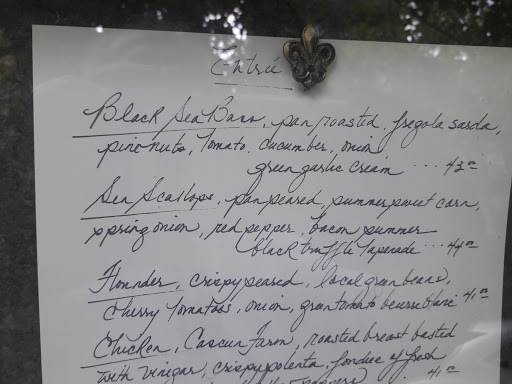 Entrée
Black Sea Bass, pan roasted, fregola sarda,
pinenuts, tomato, cucumber, onion
green garlic cream ... 42.00
Sea Scallops, pan seared, summer sweet corn,
spring onion, red pepper, bacon summer
black truffle Taperade ... 44.00
Flounder, crispy seared, local green beans,
cherry tomatoes, onion, green tomato beurre blanc 41.00
Chicken, Cascun Farm, roasted breast basted
with vinegar, crispy polenta, fondue of fresh
41.00